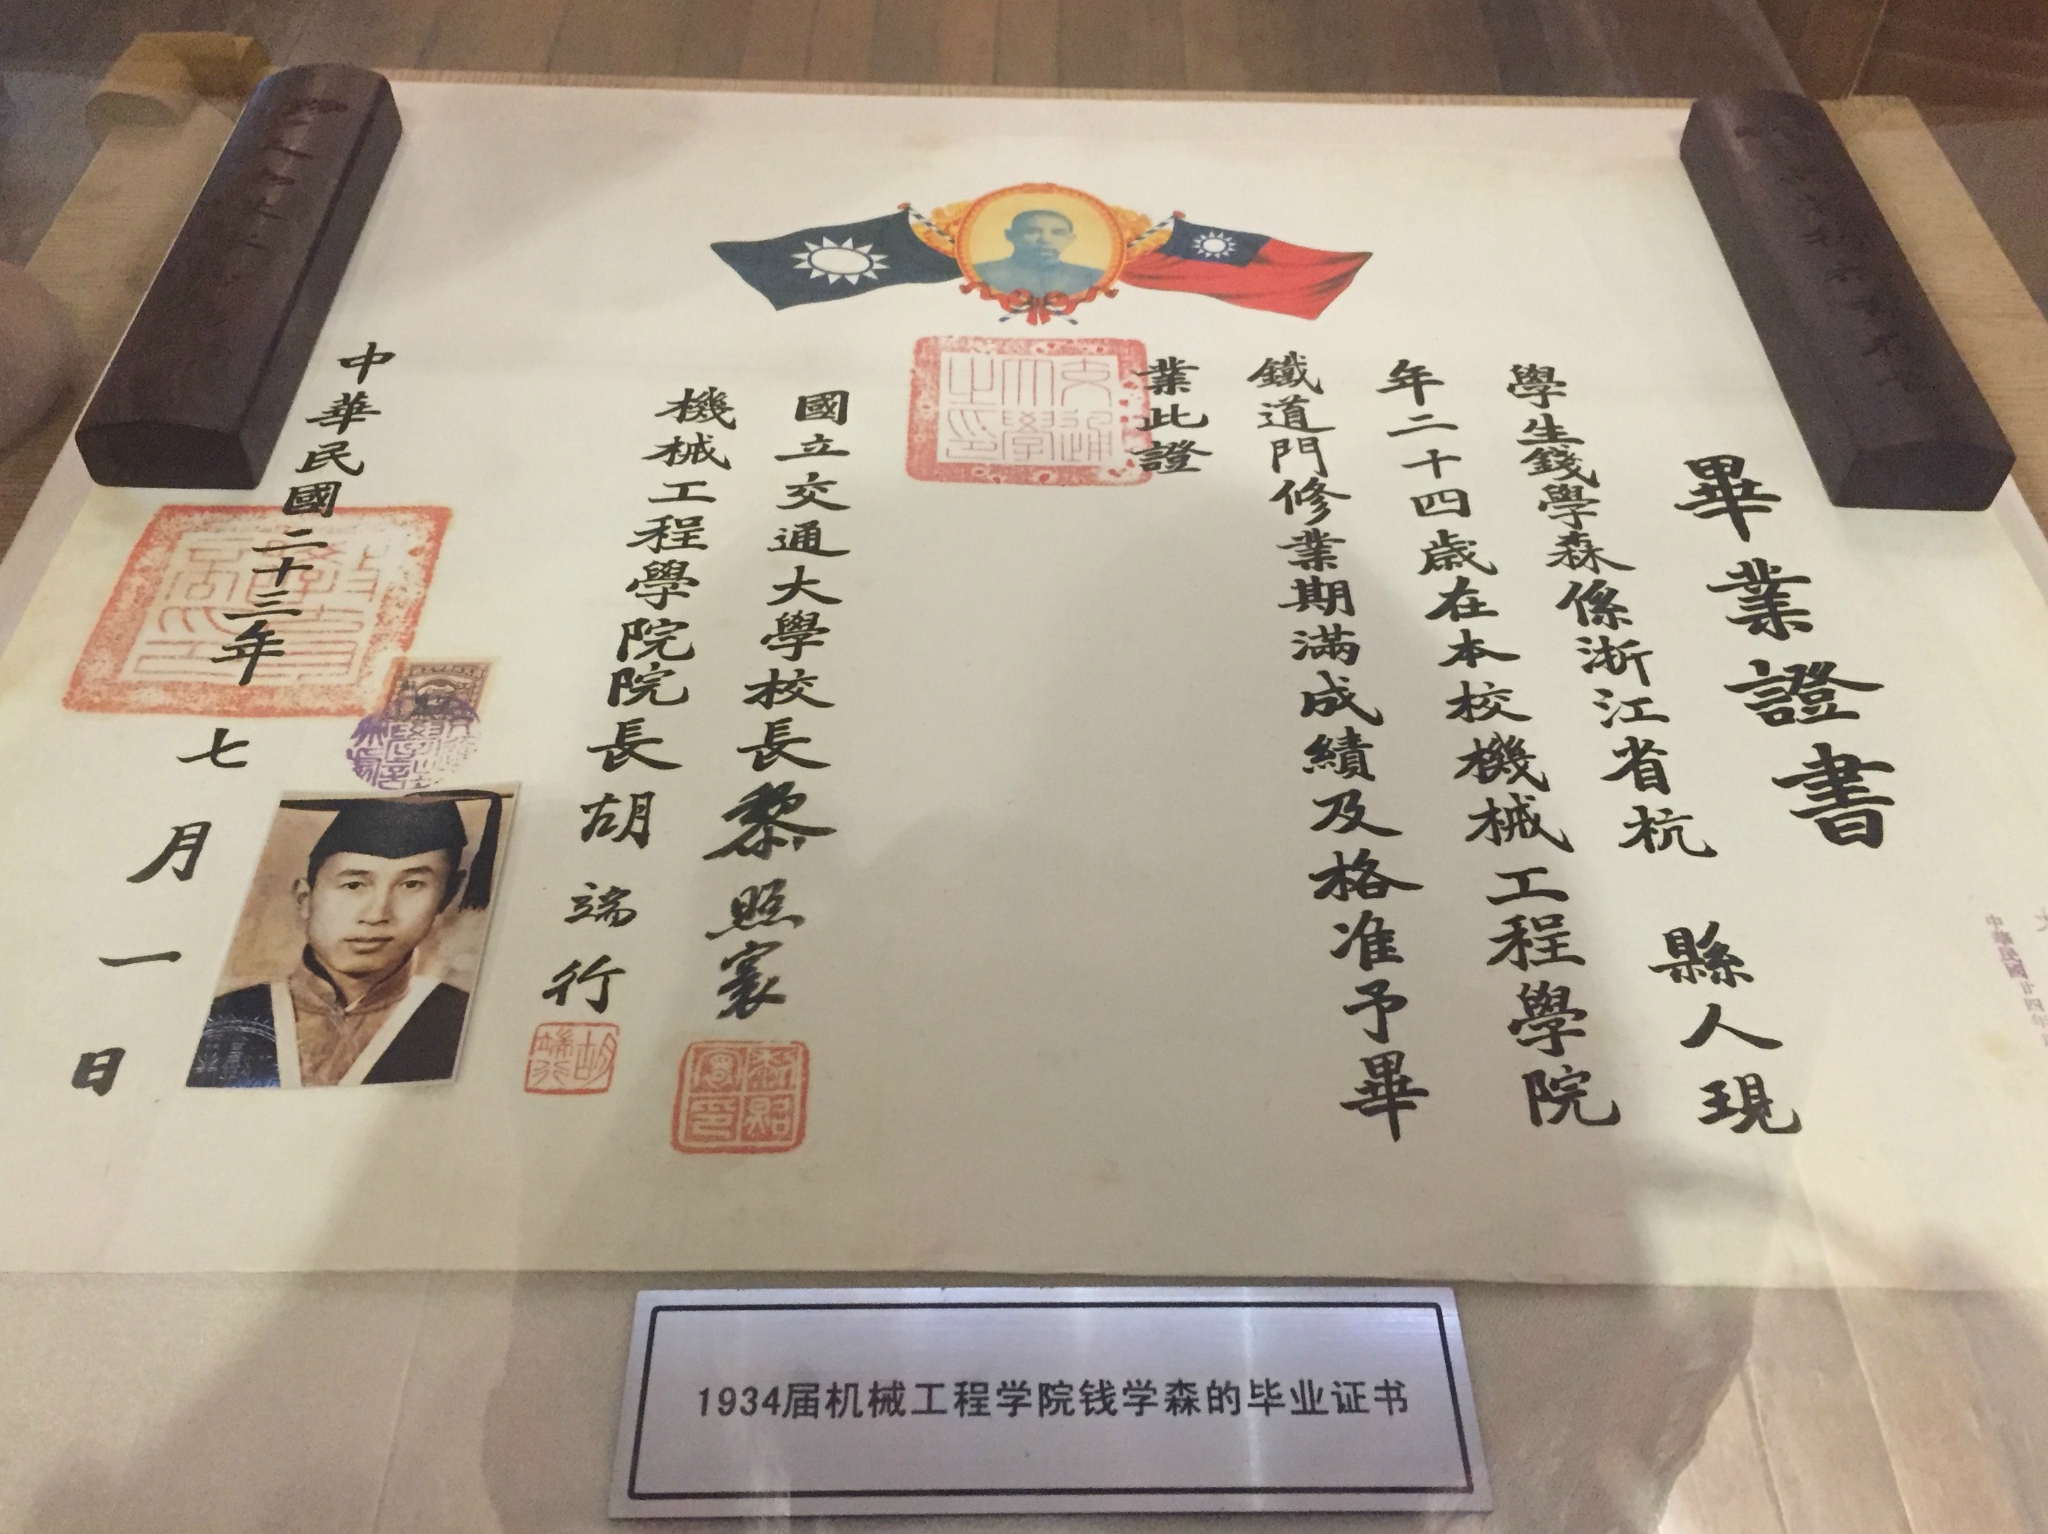 畢業證書
學生錢學森係浙江省杭縣人現
年二十四歲在本校機械工程學院
鐵道門修業期滿成績及格准予畢
業此證
交通大學之印
國立交通大學校長黎照寰
黎照寰印
機械工程學院院長胡端行
胡端行
中華民國二十三年七月一日
教育部印
中華民國廿四年
1934届机械工程学院钱学森的毕业证书